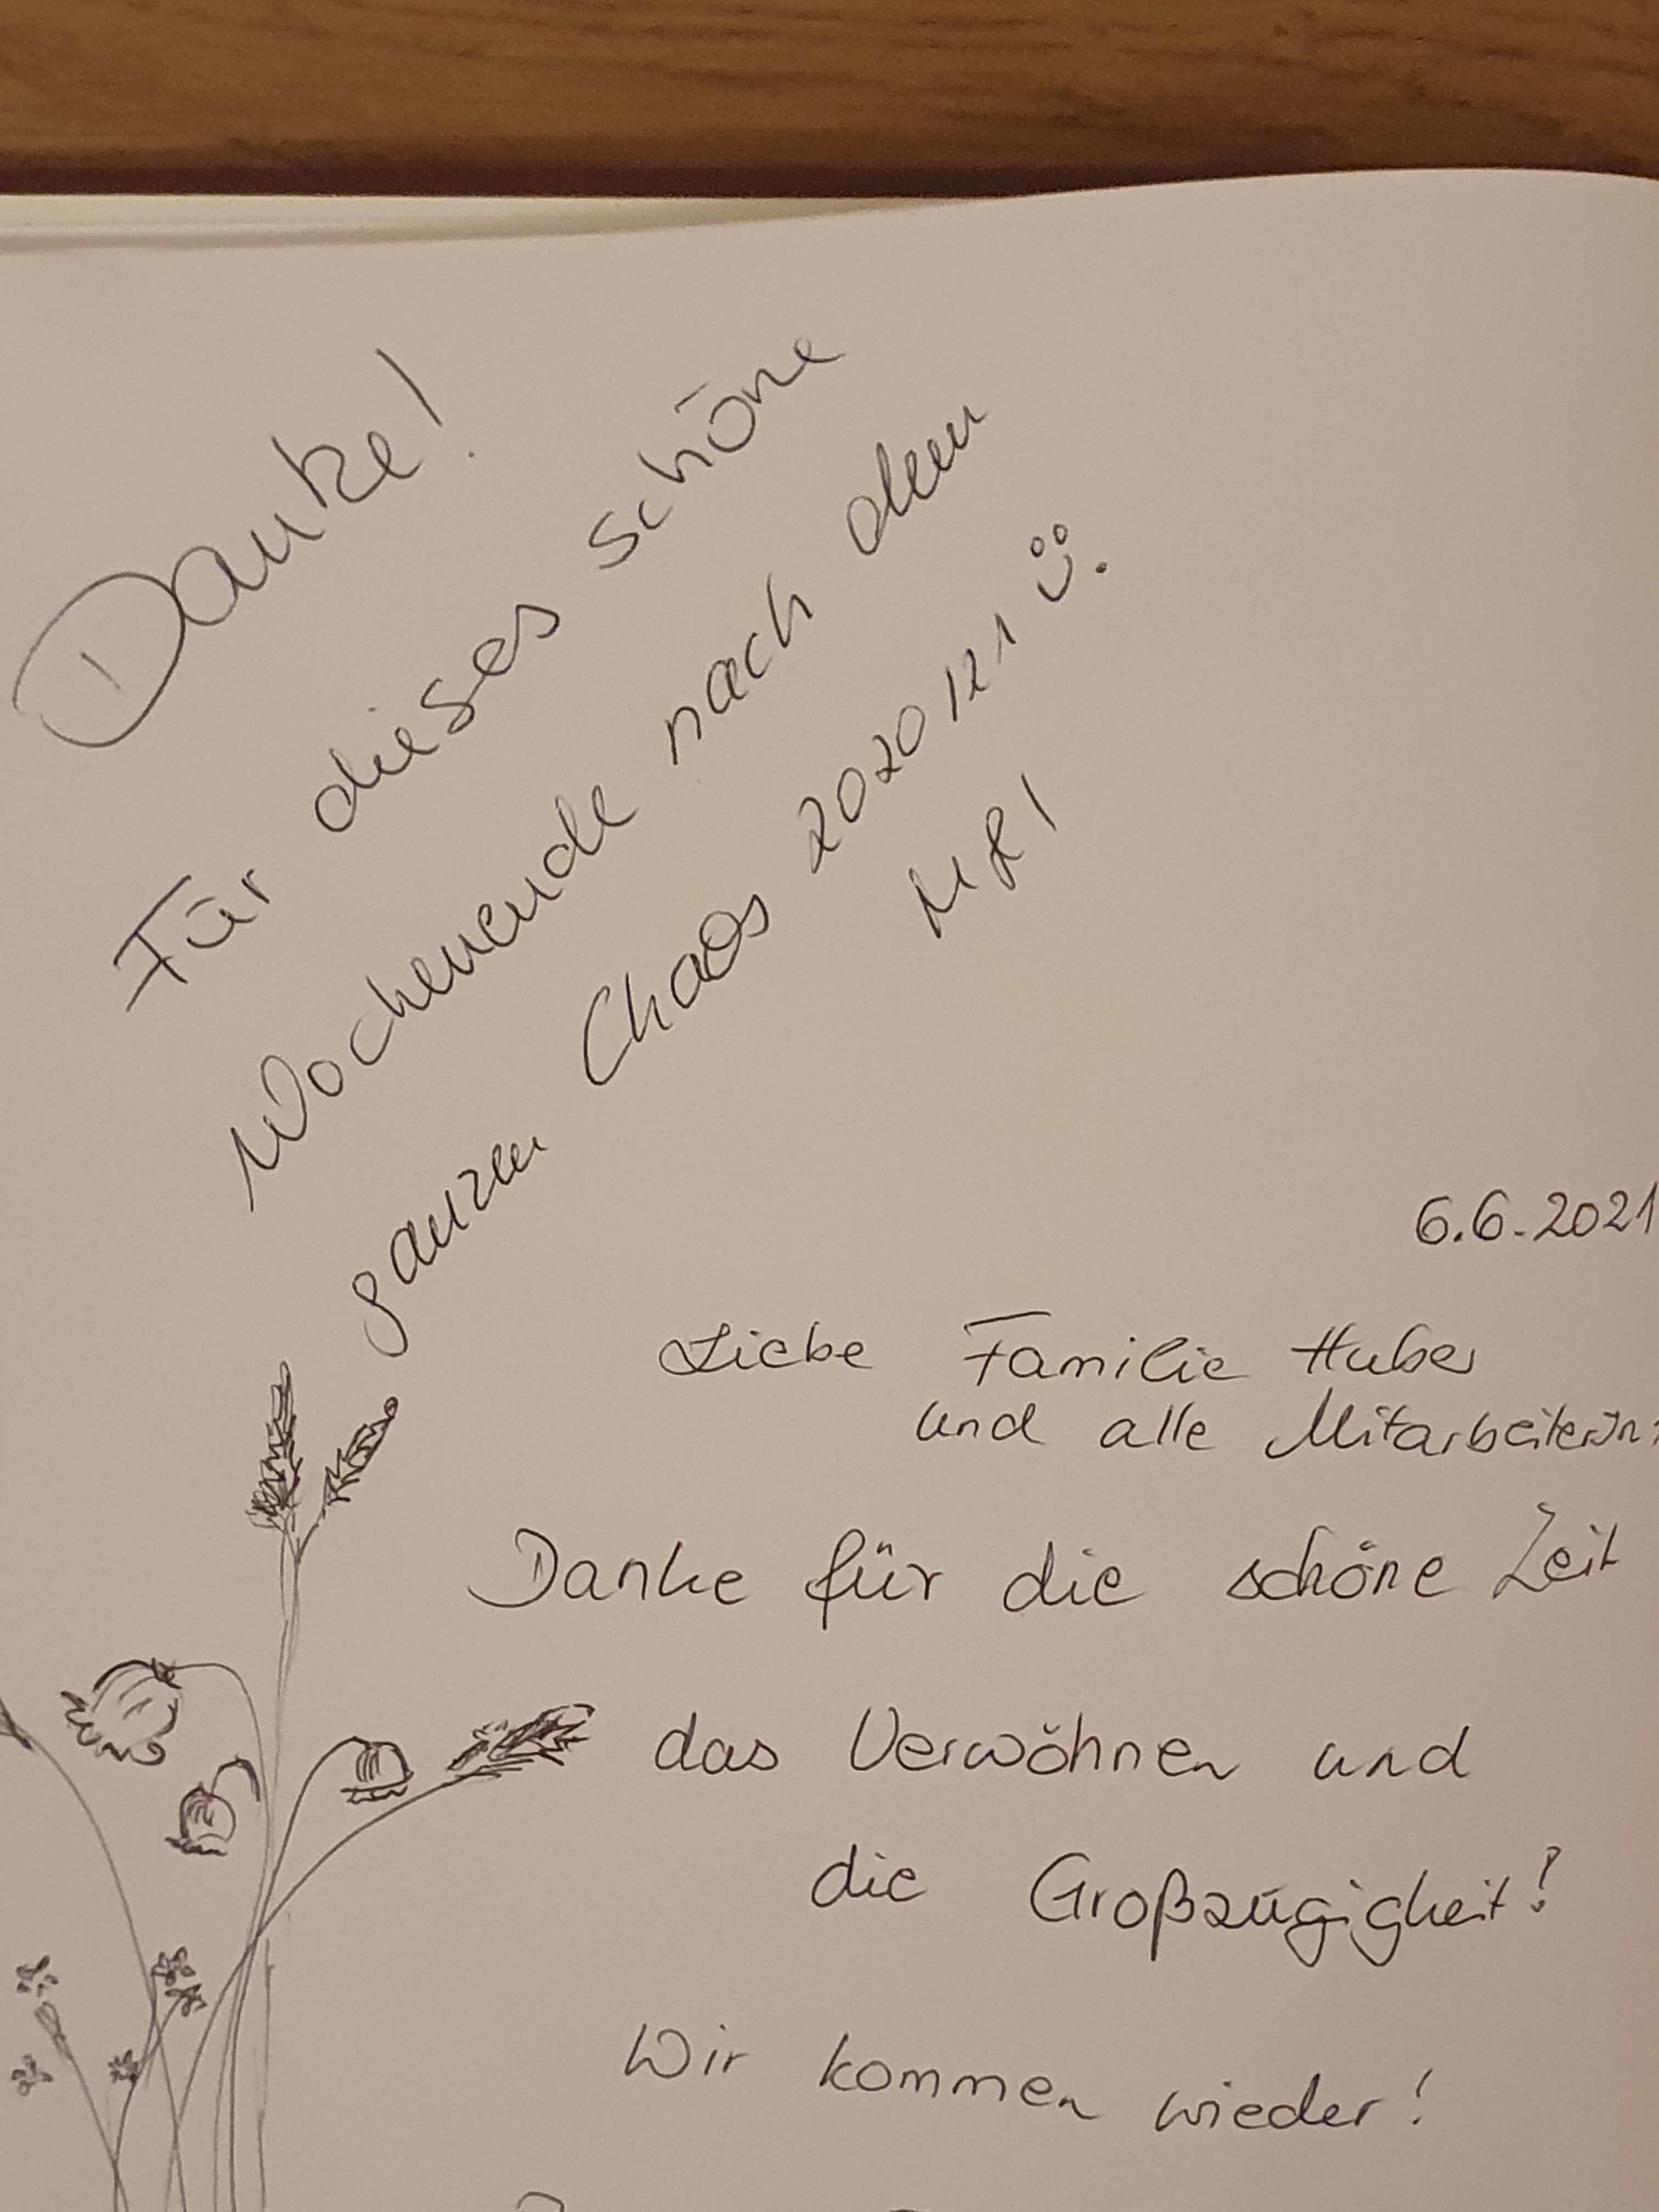 Danke!
Für dieses schöne
Wochenende nach dem
ganzen Chaos 2020/21 ☺.
6.6.2021
Liebe Familie Huber
und alle Mitarbeiter
Danke für die schöne Zeit
das Verwöhnen und
die Großzügigkeit!
Wir kommen wieder!